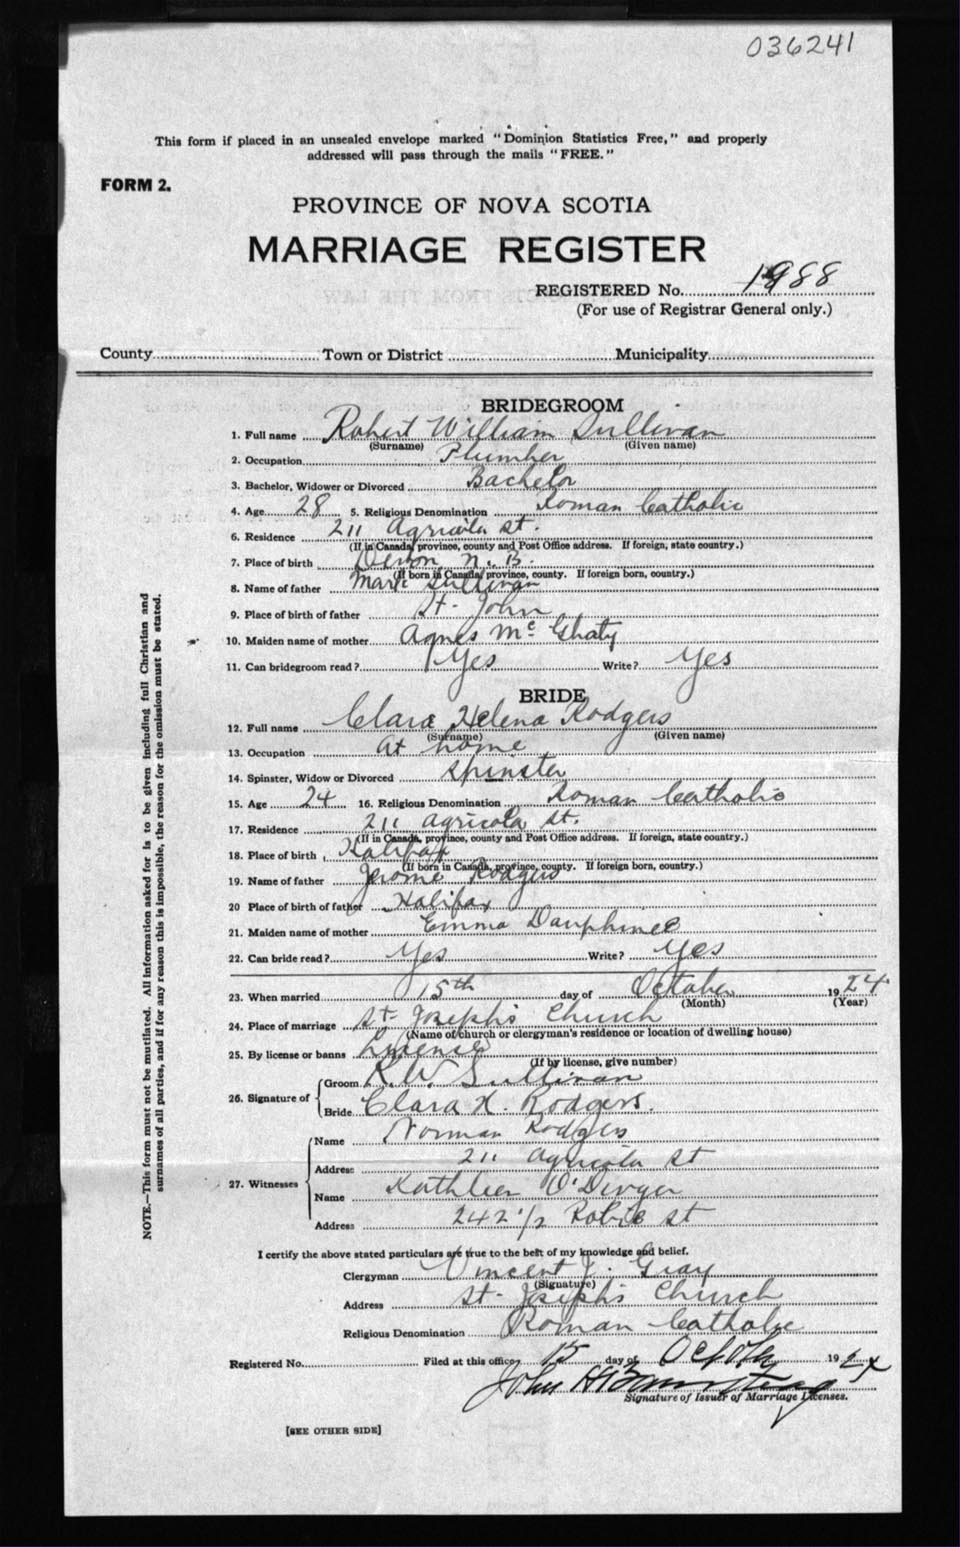 036241
This form if placed in an unsealed envelope marked "Dominion Statistics Free," and properly
addressed will pass through the mails "FREE."
FORM 2.
PROVINCE OF NOVA SCOTIA
MARRIAGE REGISTER
REGISTERED No. 1988
(For use of Registrar General only.)
County Town or District Municipality
BRIDEGROOM
1. Full name Robert William Sullivan
(Surname) (Given name)
2. Occupation Plumber
3. Bachelor, Widower or Divorced Bachelor
4. Age 28 5. Religious Denomination Roman Catholic
6. Residence 211 Agricola St.
(If in Canada, province, county and Post Office address. If foreign, state country.)
7. Place of birth Devon N. B.
(If born in Canada, province, county. If foreign born, country.)
8. Name of father Mark Sullivan
9. Place of birth of father St. John
10. Maiden name of mother Agnes Mc Ghaty
11. Can bridegroom read? Yes Write? Yes
BRIDE
12. Full name Clara Helena Rodgers
(Surname) (Given name)
13. Occupation At home
14. Spinster, Widow or Divorced Spinster
15. Age 24 16. Religious Denomination Roman Catholic
17. Residence 211 Agricola St.
(If in Canada, province, county and Post Office address. If foreign, state country.)
18. Place of birth Halifax
(If born in Canada, province, county. If foreign born, country.)
19. Name of father Jerome Rodgers
20 Place of birth of father Halifax
21. Maiden name of mother Emma Dauphinee
22. Can bride read? Yes Write? Yes
23. When married 15th day of October 1924
(Month) (Year)
24. Place of marriage St. Joseph's Church
(Name of church or clergyman's residence or location of dwelling house)
25. By license or banns License
(If by license, give number)
26. Signature of
Groom R. W. Sullivan
Bride Clara H. Rodgers.
27. Witnesses
Name Norman Rodgers
Address 211 Agricola St
Name Kathleen O'Dwyer
Address 242 1/2 Robie St
I certify the above stated particulars are true to the best of my knowledge and belief.
Clergyman Vincent J. Gray
(Signature)
Address St. Joseph's Church
Religious Denomination Roman Catholic
Registered No. Filed at this office, 15 day of Octobr 1924
John H
Signature of Issuer of Marriage Licenses.
[SEE OTHER SIDE]
NOTE.—This form must not be mutilated. All information asked for is to be given including full Christian and
surnames of all parties, and if for any reason this is impossible, the reason for the omission must be stated.